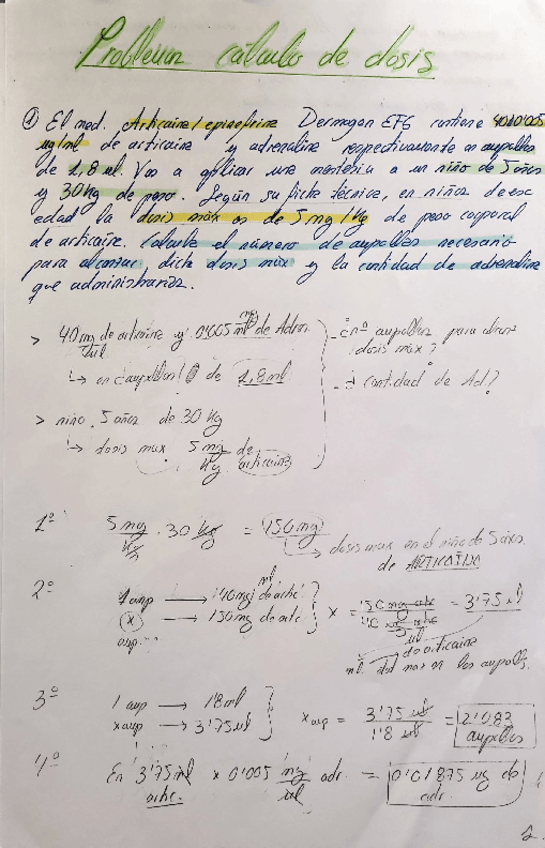 Problemas cálculo de dosis
① El med. Articaina/epinefrina Dermogen EFG contiene 40/0'005
mg/ml de articaina y adrenalina respectivamente en ampollas
de 1,8 ml. Vas a aplicar una anestesia a un niño de 5 años
y 30 kg de peso. Según su ficha técnica, en niños de esa
edad la dosis máx es de 5 mg/kg de peso corporal
de articaina. Calcula el número de ampollas necesario
para alcanzar dicha dosis máx y la cantidad de adrenalina
que administrarás.
> 40 mg/1ml de articaina y 0'005 mg/ml de Adren
↳ en ampollas de 1,8 ml
- ¿nº ampollas para
dosis máx?
- ¿Cantidad de Ad?
> niño 5 años de 30 kg
↳ dosis max 5 mg/kg de articaina
1º 5 mg/kg · 30 kg = 150 mg
→ dosis max en el niño de 5 años
de ARTICAINA
2º 1 amp → 40 mg de artic
x amp → 150 mg de artic
x = 150 mg artic / 40 mg artic/ml = 3'75 ml
de articaina
ml en las ampolls.
3º 1 amp → 1'8 ml
x amp → 3'75 ml
x amp = 3'75 ml / 1'8 ml = 2'083 ampollas
4º En 3'75 ml artic. x 0'005 mg/ml adr. = 0'01875 mg de adr.